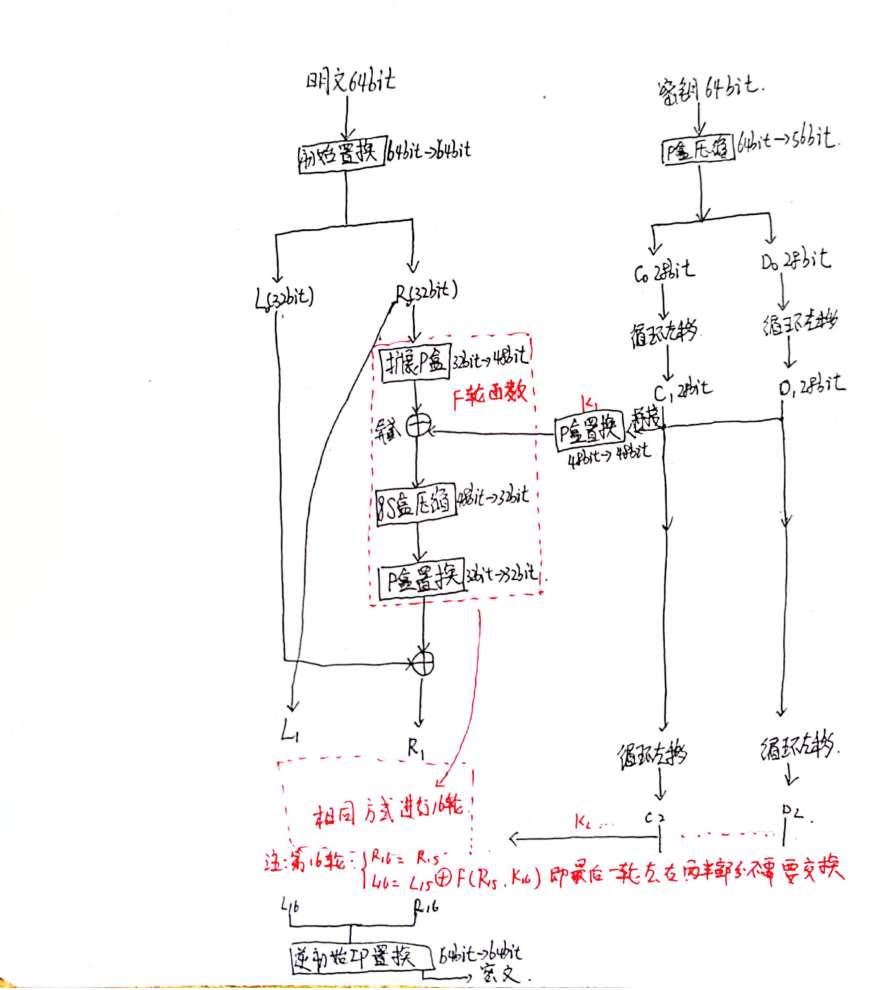 明文64bit
初始置换 64bit→64bit
L0(32bit)
R0(32bit)
扩展P盒 32bit→48bit
F轮函数
异或
8S盒压缩 48bit→32bit
P盒置换 32bit→32bit.
L1
R1
密钥64bit.
P盒压缩 64bit→56bit.
C0 28bit
D0 28bit
循环左移
循环左移
C1 28bit
D1 28bit
拼接
K1
P盒置换
48bit→48bit
循环左移
循环左移.
C2
D2
K2 ...
相同方式进行16轮
注:第16轮: R16 = R15
L16 = L15⊕F(R15, K16) 即最后一轮左右两半部分不需要交换
L16
R16
逆初始IP置换 64bit→64bit
密文.